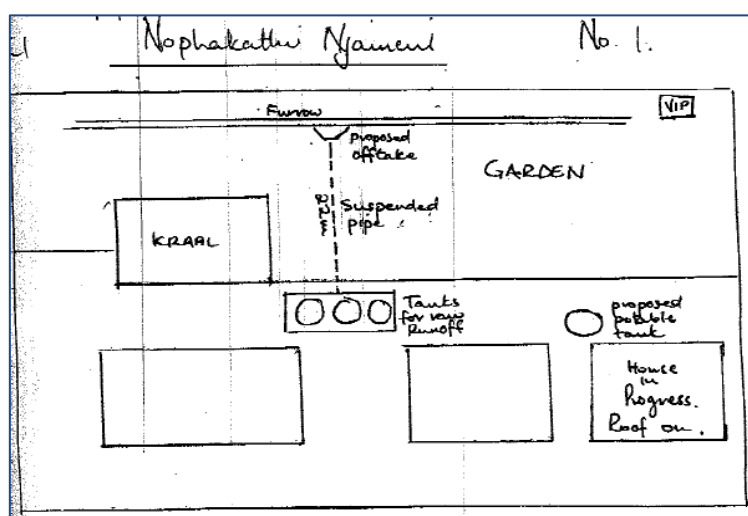 Nophakathi Njameni No. 1.
Furrow
VIP
proposed
offtake
GARDEN
Suspended
pipe
KRAAL
Tanks
for raw
Runoff
proposed
potable
tank
House
in
Progress.
Roof on.